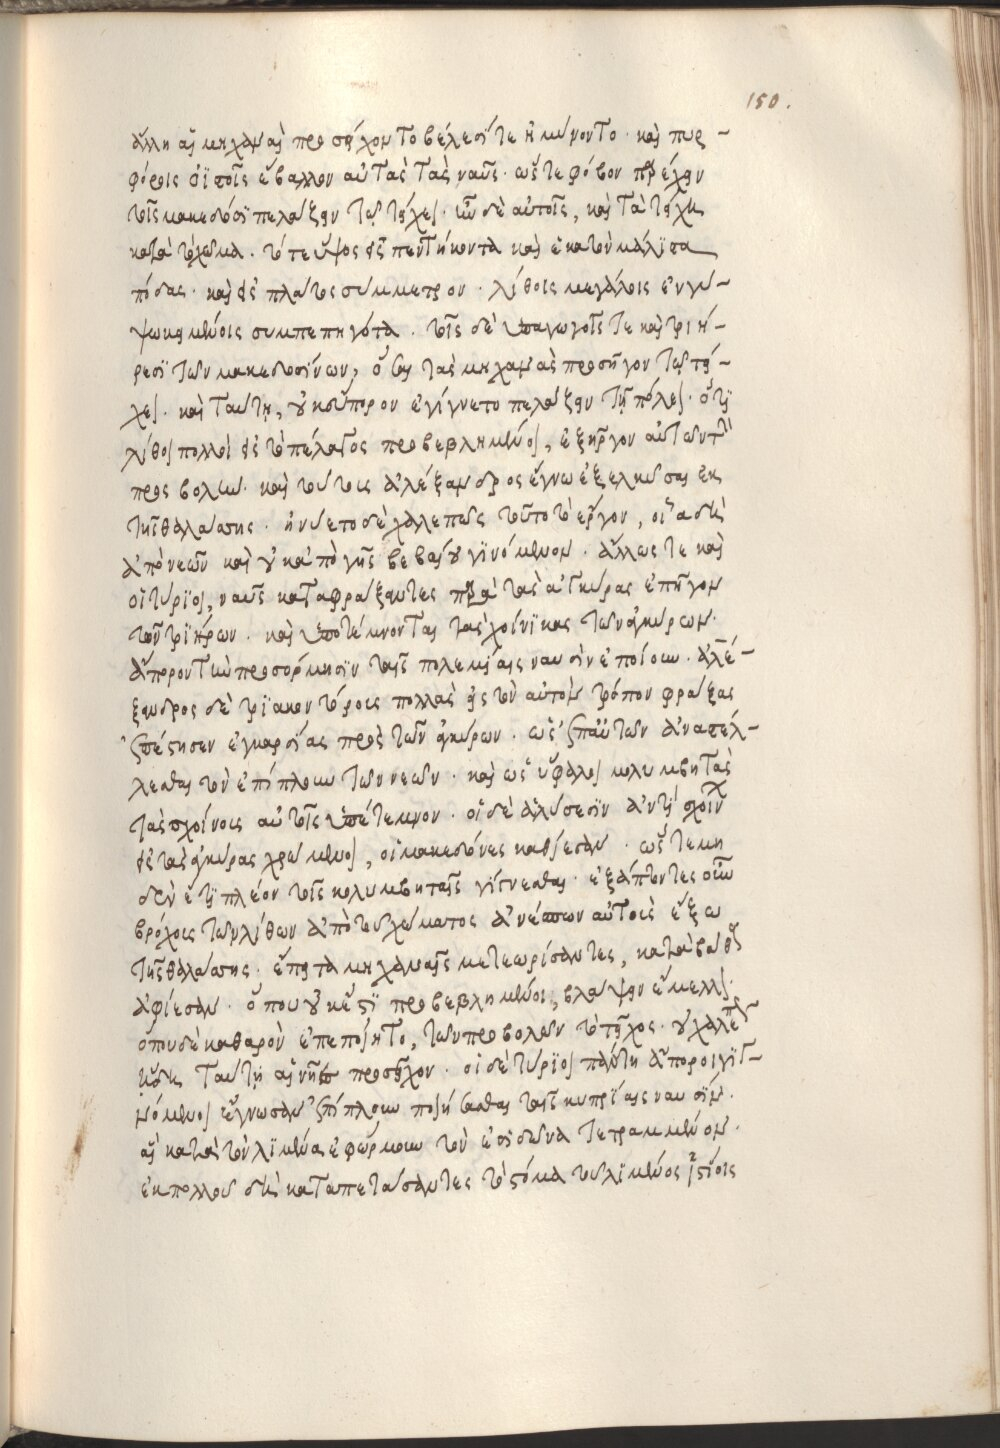 ἄλλη αἱ μηχαναὶ προσεῖχον το βέλεσίτε ἠμύνοντο. καὶ πυρ-
φόροις ὀϊστοῖς ἔβαλλον αὐτὰς τὰς ναῦς. ὥστε φόβον παρέχειν
τοῖς μακεδόσι πελάζειν τῷ τείχει. ἦν δὲ αὐτοῖς, καὶ τὰ τείχη
κατὰ τὸ χῶμα. τό τε ὕψος ἐς πεντήκοντα καὶ ἑκατὸν μάλιστα
πόδας. καὶ ἐς πλάτος σύμμετρον. λίθοις μεγάλοις ἐν γύ-
ψω κειμένοις συμπεπηγότα. τοῖς δὲ ὑπαγωγοῖς τε καὶ τριή-
ρεσι τῶν μακεδοσίνων, ὅσαι τὰς μηχανὰς προσῆγον τῷ τεί-
χει. καὶ ταύτῃ, οὐκ εὔπορον ἐγίγνετο πελάζειν τῇ πόλει. ὅτι
λίθοι πολλοὶ ἐς τὸ πέλαγος προβεβλημένοι, ἐξῆργον αὐτῶν τὴν
προς βολὴν. καὶ τούτους ἀλέξανδρος ἔγνω ἐξελκύσαι ἐκ
τῆς θαλάσσης. ἠνύετο δὲ χαλεπῶς τοῦτο τὸ ἔργον, οἷα δὴ
ἀπὸ νεῶν καὶ οὐκ ἀπὸ γῆς βεβαίου γινόμενον. ἄλλως τε καὶ
οἱ τύριοι, ναῦς καταφράξαντες παρὰ τὰς ἀγκύρας ἐπῆγον
τῶν τριήρων. καὶ ὑποτέμνοντας τὰς χοίνικας τῶν ἀγκύρων.
ἄπορον τὴν προσόρμησιν ταῖς πολεμίαις ναυσὶν ἐποίουν. ἀλέ-
ξανδρος δὲ τριακοντόρους πολλὰς ἐς τὸν αὐτὸν τρόπον φράξας
ἐπέστησεν ἐγκαρσίας πρὸς τῶν ἀγκύρων. ὡς ἐπ' αὐτῶν ἀναστέλ-
λεσθαι τὸν ἐπίπλουν τῶν νεῶν. καὶ ὣς ὕφαλοι κολυμβηταὶ
τὰς σχοίνους αὐτοῖς ὑπέτεμνον. οἱ δὲ ἀλύσεσιν ἀντὶ σχοίνων
ἐς τὰς ἀγκύρας χρώμενοι, οἱ μακεδόνες καθίεσαν. ὥστε μη
δὲν ἔτι πλέον τοῖς κολυμβηταῖς γίγνεσθαι. ἐξάπτοντες οὖν
βρόχους τῶν λίθων ἀπὸ τοῦ χώματος ἀνέσπων αὐτοὺς ἔξω
τῆς θαλάσσης. ἔπειτα μηχαναῖς μετεωρίσαντες, κατὰ βάθους
ἀφίεσαν. ὅπου οὐκέτι προβεβλημένοι, βλάψειν ἔμελλον.
ὅπου δὲ καθαρὸν ἐπεποίητο, τῶν προβολῶν τὸ τεῖχος. οὐ χαλεπῶς
ἤδη ταύτῃ αἱ νῆες προσεῖχον. οἱ δὲ τύριοι πάντη ἄποροι γιγ-
νόμενοι ἔγνωσαν ἐπίπλουν ποιήσασθαι ταῖς κυπρίαις ναυσίν.
αἳ κατὰ τὸν λιμένα ἐφώρμουν τὸν ἐς σιδῶνα τετραμμένον.
ἐκ πολλοῦ δὴ καταπετάσαντες τὸ στόμα τοῦ λιμένος ἱστίοις
150.